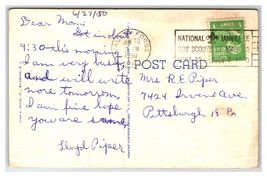 6/27/50
Dear Mom,
Got in today
9:30 this morning.
I am very busy
and will write
more tomorrow.
I am fine hope
you are same.
Lloyd Piper
POST CARD
NATIONAL JAMBOREE
BOY SCOUTS
Mrs. R. E. Piper
7424 Irvine Ave
Pittsburgh Pa